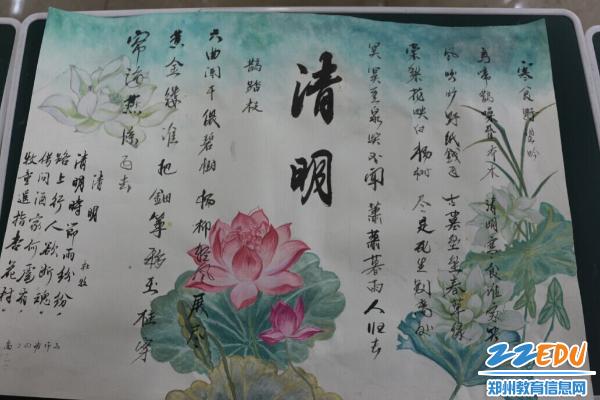 寒食野望吟
乌啼鹊噪昏乔木 清明寒食谁家哭
风吹旷野纸钱飞 古墓垒垒春草绿
棠梨花映白杨树 尽是死生别离处
冥冥重泉哭不闻 萧萧暮雨人归去
清明
鹊踏枝
六曲阑干偎碧树 杨柳轻风 展尽
黄金缕 谁把钿筝移玉柱 穿
帘海燕 去
清明
杜牧
清明时节雨纷纷
路上行人欲断魂
借问酒家何处有
牧童遥指杏花村
高二
ZZEDU
郑州教育信息网